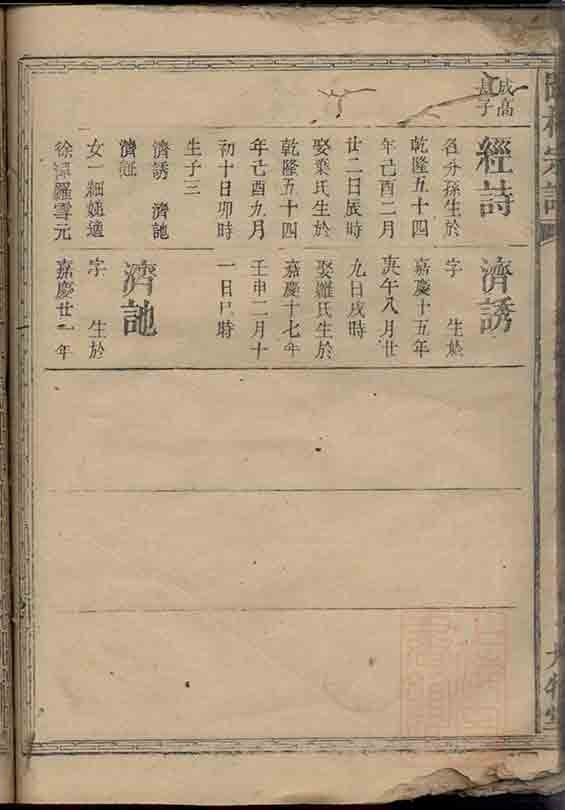 成高
長子
經詩
名芬孫生於
乾隆五十四
年己酉二月
廿二日辰時
娶葉氏生於
乾隆五十四
年己酉九月
初十日卯時
生子三
濟誘 濟訑
濟
女一細適
徐羅雪元
濟誘
字 生於
嘉慶十五年
庚午八月廿
九日戌時
娶羅氏生於
嘉慶十七年
壬申二月十
一日巳時
濟訑
字 生於
嘉慶廿一年
宗譜